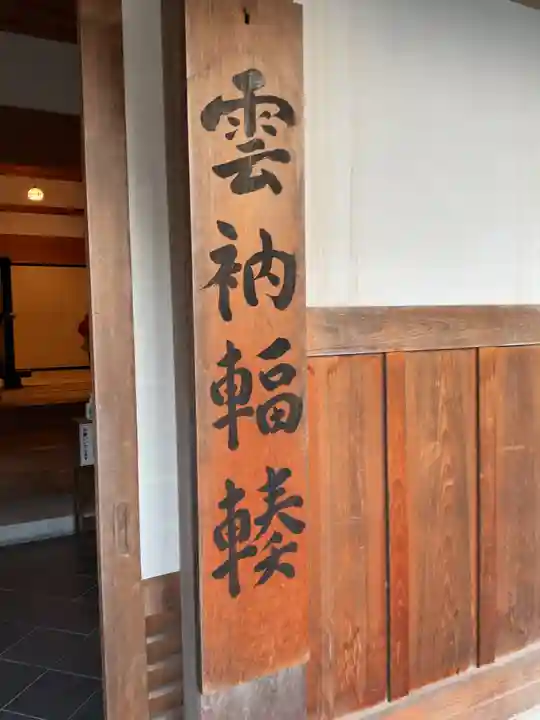 雲衲輻輳